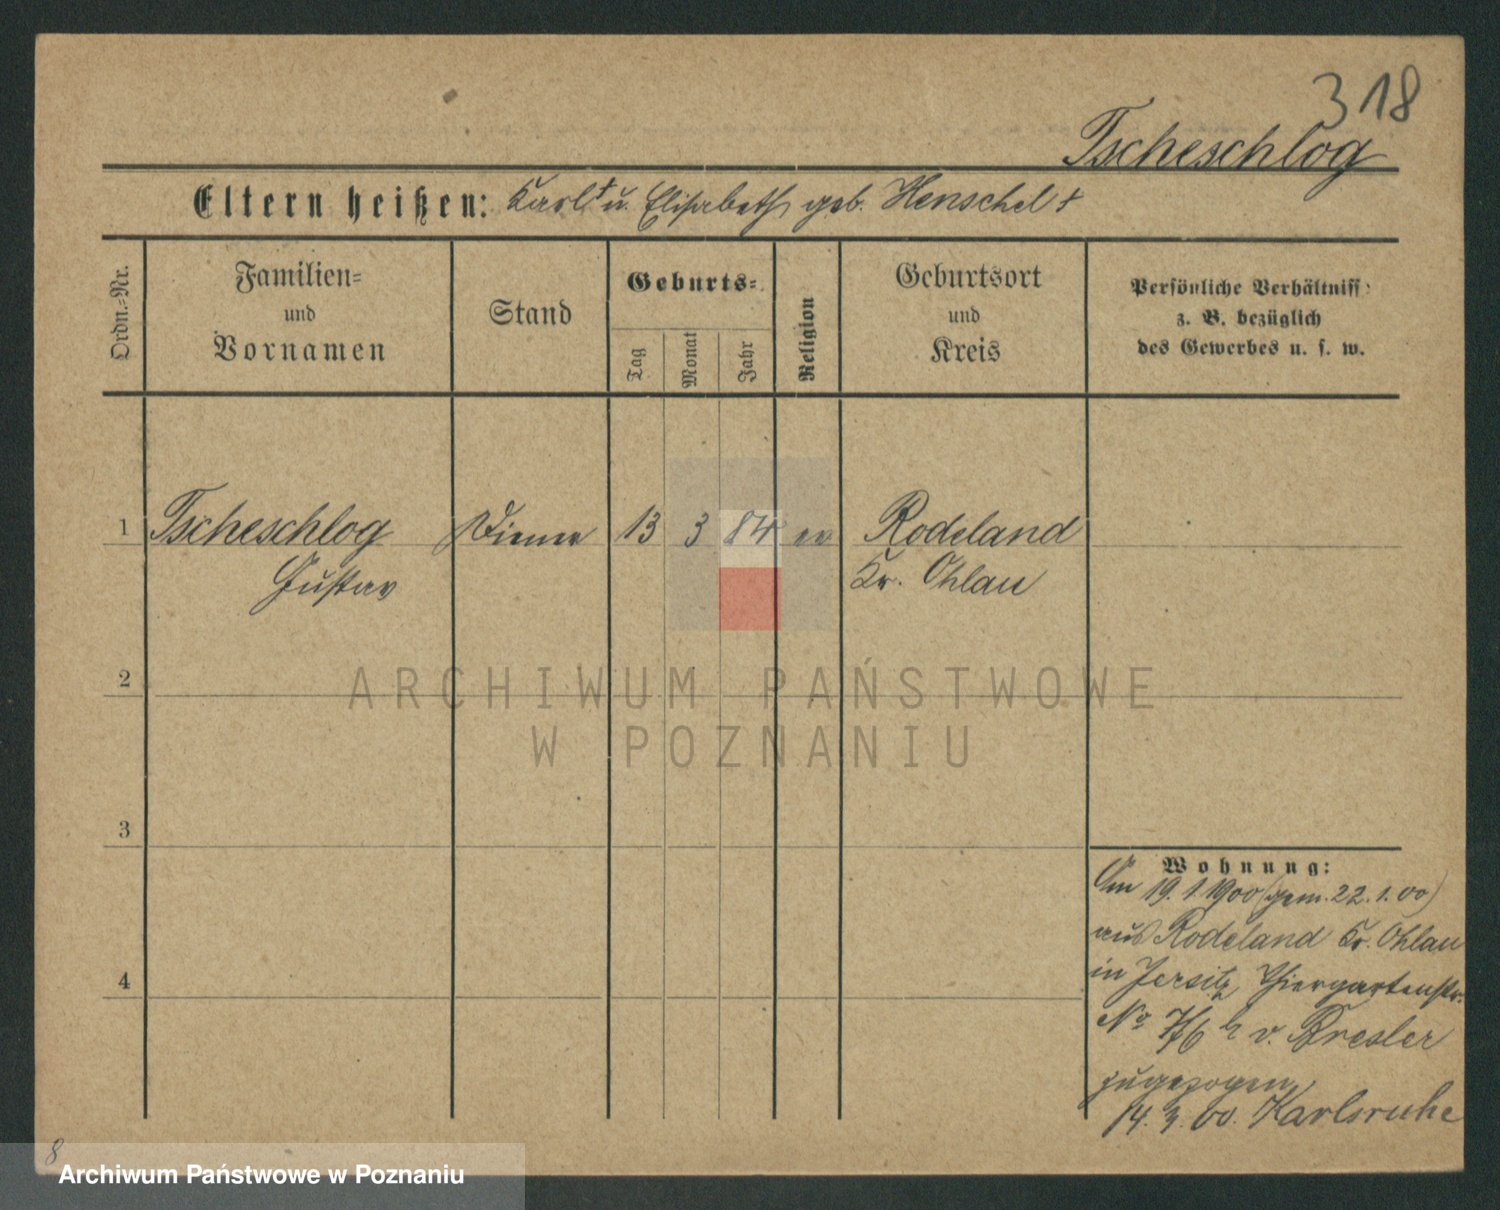 318
Tscheschlog
Eltern heißen: Karl † u. Elisabeth geb. Henschel †
Ordn.-Nr.
Familien-
und
Vornamen
Stand
Geburts-
Tag
Monat
Jahr
Religion
Geburtsort
und
Kreis
Persönliche Verhältniss
z. B. bezüglich
des Gewerbes u. s. w.
1 Tscheschlog Diener 13 3 84 ev Rodeland
Gustav Kr. Ohlau
2
3
4
Wohnung:
Am 19.1.1900 (gem. 22.1.00)
aus Rodeland Kr. Ohlau
in Jersitz, Thiergartenstr.
No b v. Bresler
zugezogen
14. 3. 00. Karlsruhe
8
ARCHIWUM PAŃSTWOWE
W POZNANIU
Archiwum Państwowe w Poznaniu